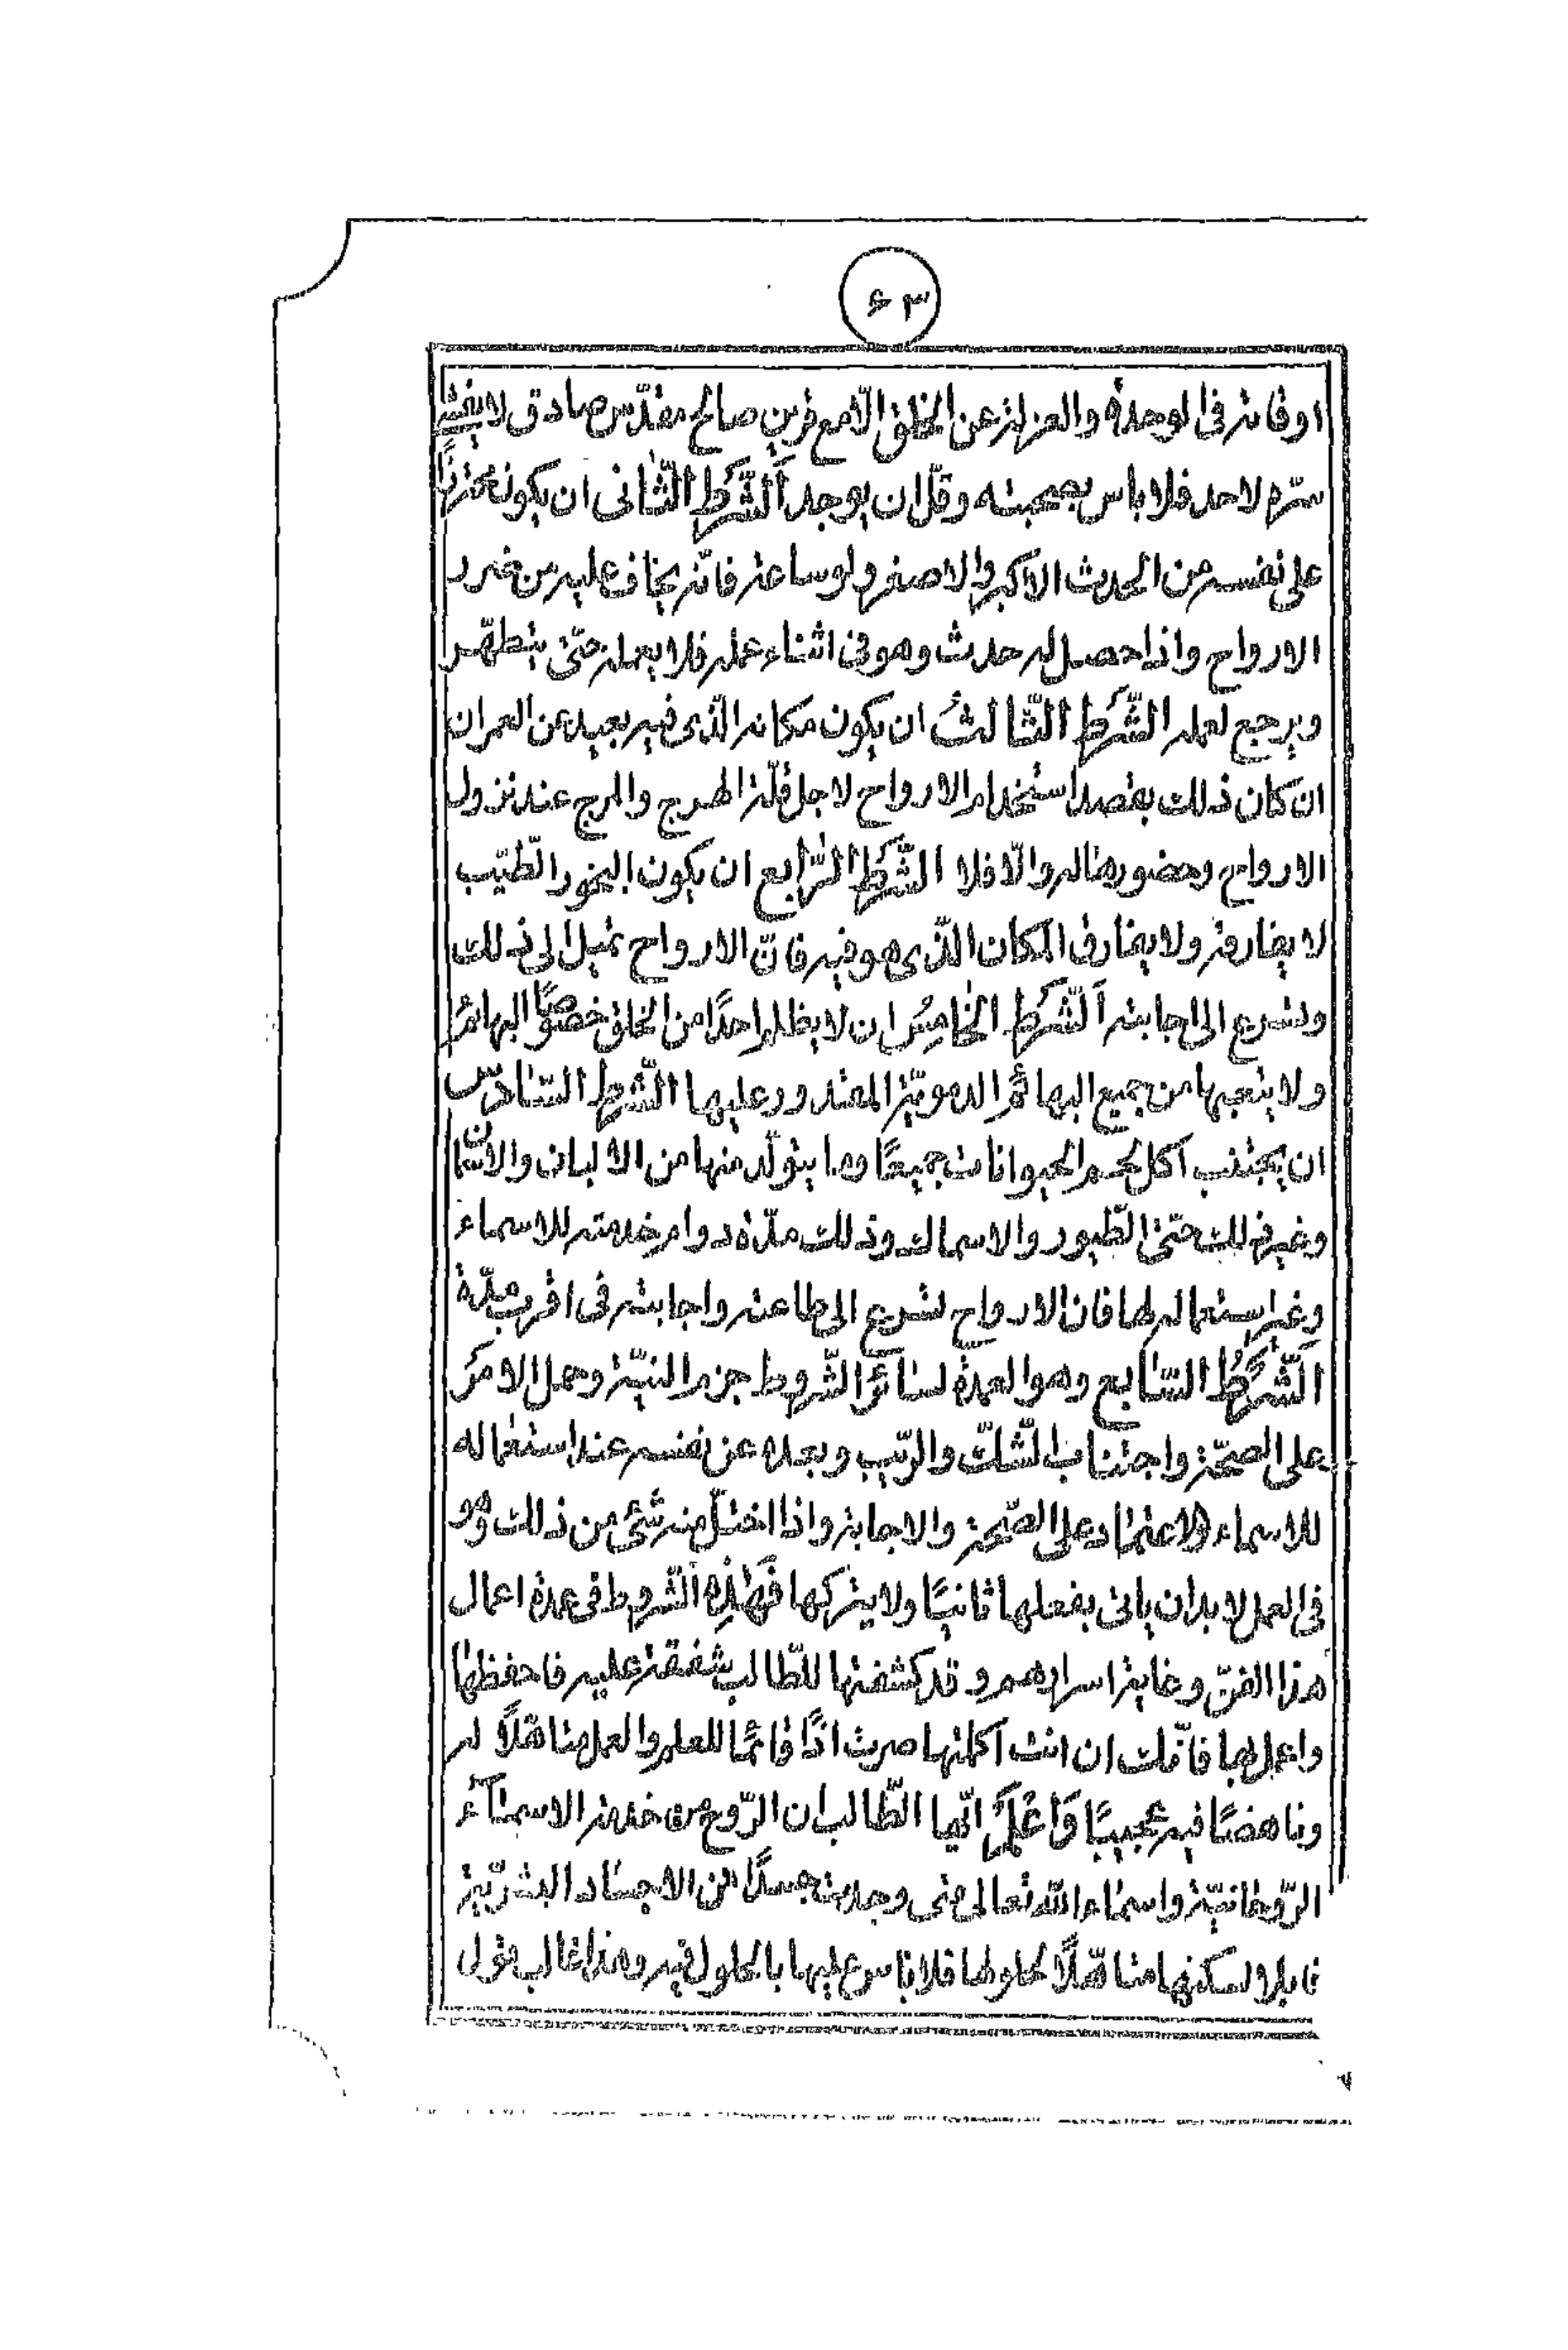 ٣٤
اوقاته فى الوحدة والعزلة عن الخلق الّا مع قرين صالح مقدّس صادق لا يفشى
سرّه لاحد فلا باس بصحبته وقلّ ان يوجد اَلشَّرطُ الثّانى ان يكون محترزًا
على نفسه من الحدث الاكبر والاصغر ولو ساعة فانّه يخاف عليه من ضرر
الارواح واذا حصل له حدث وهو فى اثناء عمله فلا يعمله حتّى يتطهّر
ويرجع لعمله الشَّرطُ الثّالثُ ان يكون مكانه الّذى فيه بعيد عن العمران
ان كان ذلك بقصد استخدام الارواح لاجل قلّة الهرج والمرج عند نزول
الارواح وحضورها له والّا فلا الشَّرطُ الرّابع ان يكون البخور الطّيّب
لا يفارقه ولا يفارق المكان الّذى هو فيه فانّ الارواح تميل الى ذلك
وتسرع الى اجابته اَلشَّرطُ الخامِسُ ان لا يظلم احدًا من الخلق خصوصًا البهائم
ولا يتعبها من جميع البهائم الدمويّة المقدور عليها الشَّرط السّادس
ان يجتنب اكل لحم الحيوانات جميعًا وما يتولّد منها من الالبان والاسمان
وغير ذلك حتّى الطّيور والاسماك وذلك مدّة دوام خدمته للاسماء
وغير استعماله لها فان الارواح تسرع الى طاعته واجابته فى اقرب مدّة
اَلشَّرطُ السّابع وهو العمدة لسائر الشّروط جزم النيّة وحمل الامر
على الصحّة واجتناب الشّكّ والرّيب وبعده عن نفسه عند استعماله
للاسماء والاعتماد على الصّحة والاجابة واذا اختلّ منه شئ من ذلك وهو
فى العمل لا بد ان ياتى بفعلها ثانيًا ولا يتركها فَهٰذِهِ الشّروط فى عمدة اعمال
هذا الفنّ وغاية اسرارهم وقد كشفتها للطّالب شفقة عليه فاحفظها
واعمل بها فانّك ان انت اكملتها صرت اذًا قائمًا للعلم والعمل متاهّلًا له
وناهضًا فيه عجيبًا وَاعْلَمْ ايّها الطّالب ان الرّوح من خدمة الاسماء
الرّوحانيّة واسماء الله تعالى متى وجدت جسدًا من الاجساد البشريّة
قابلا لسكنها متاهّلًا لحلولها فلا باس عليها بالحلول فيه وهذا غالب